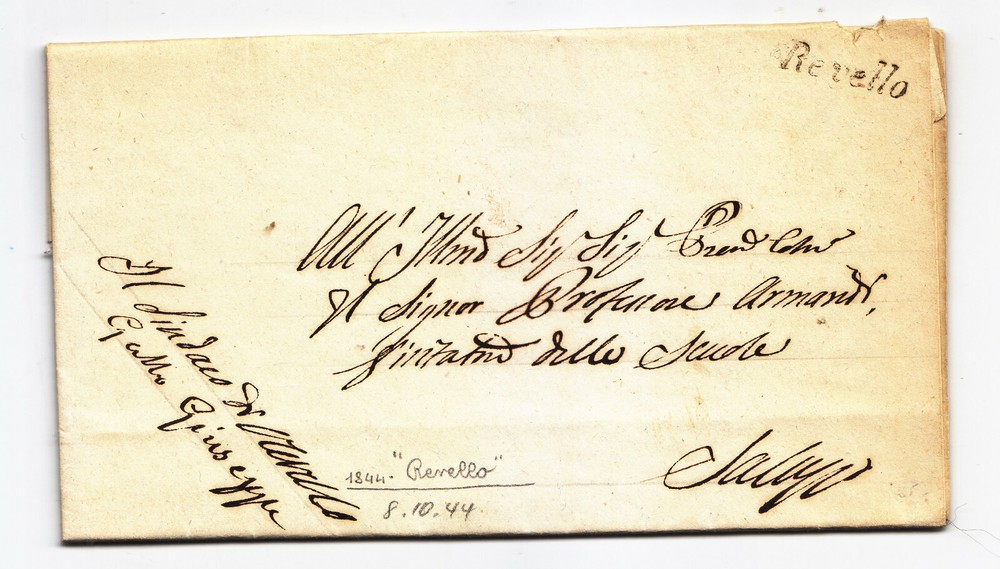 Revello
All' Illmo Sig Sig Pron Colmo
Il Signor Professore Armandi,
delle Scuole
Saluzzo
Il Sindaco di Revello
Gallo Giuseppe
1844. "Revello"
8.10.44